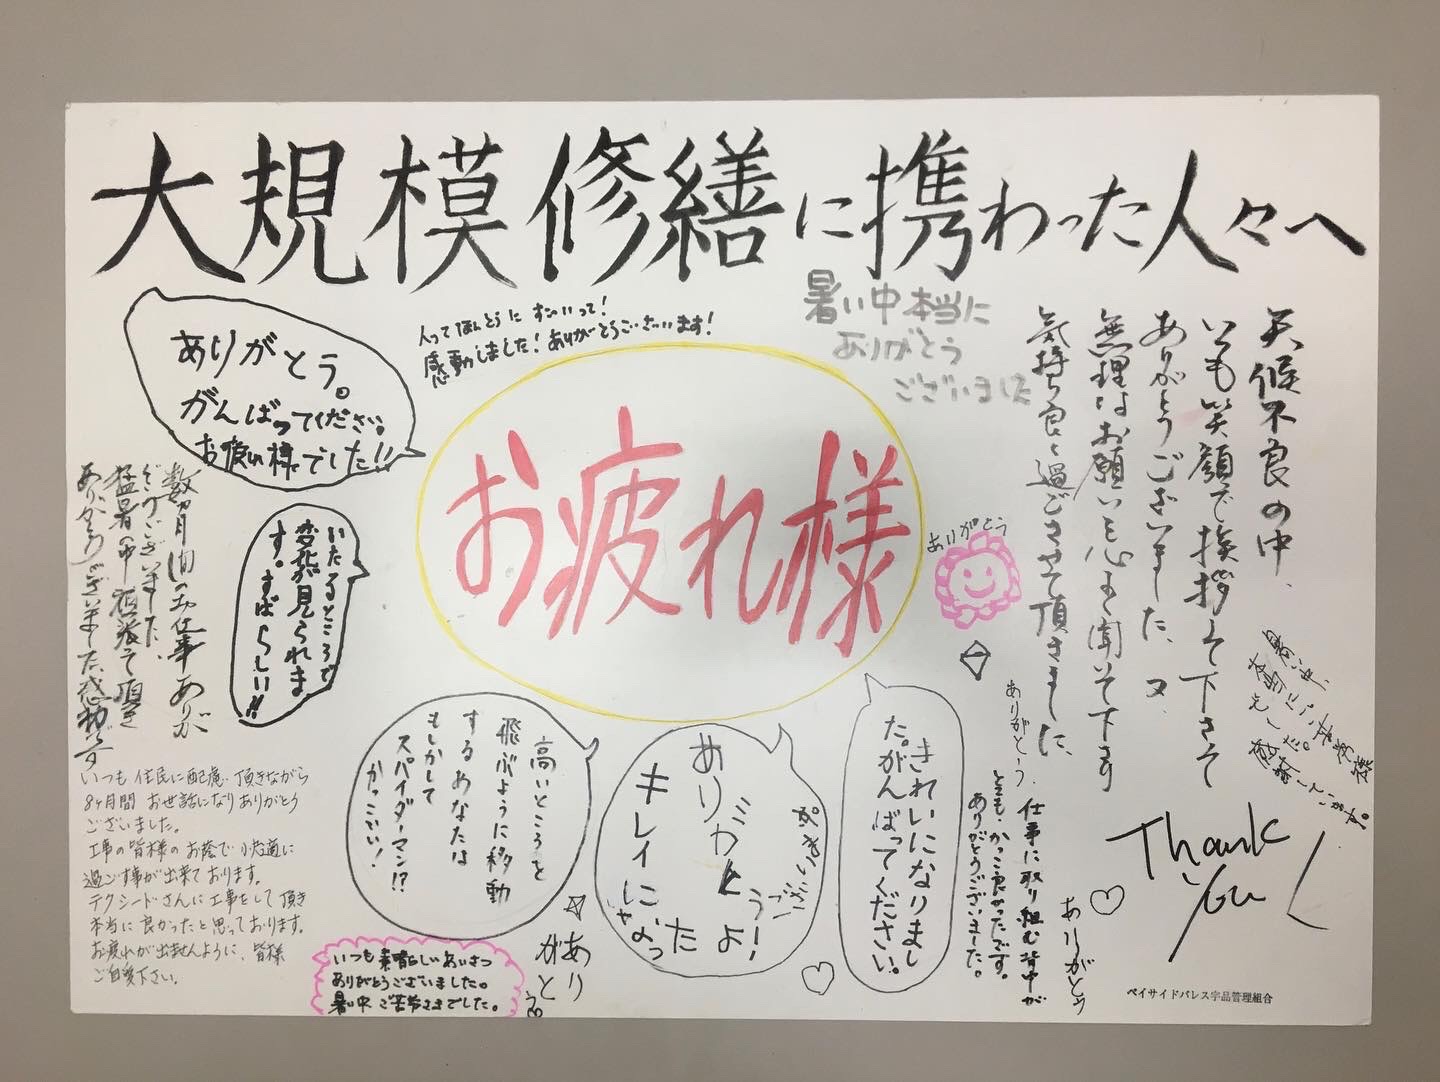 大規模修繕に携わった人々へ
ありがとう。
がんばってください。
お疲れ様でした!!
人ってほんとうにすごいって!
感動しました!ありがとうございます!
暑い中本当に
ありがとう
ございました
天候不良の中、
いつも笑顔で挨拶して下さって
ありがとうございました、又
無理なお願いも心よく聞いて下さり
気持ち良く過ごさせて頂きました、
お疲れ様
ありがとう
数ヶ月間のお仕事ありが
とうございました、
猛暑の中頑張って頂き
ありがとうございました感動です
いたるところで
変化が見られま
す。すばらしい!!
いつも住民に配慮頂きながら
8ヶ月間 お世話になりありがとう
ございました。
工事の皆様のお蔭で快適に
過ごす事が出来ております。
テクシードさんに工事をして頂き
本当に良かったと思っております。
お疲れが出ませんように、皆様
ご自愛下さい。
高いところを
飛ぶように移動
するあなたは
もしかして
スパイダーマン!?
かっこいい!
キレイになった
よ
ありがとう!
ございます
きれいになりまし
た。がんばってください。
ありがとう
仕事に取り組む背中が
とても、かっこ良かったです。
ありがとうございました。
暑い中、
本当にご苦労様
でした。
感謝しています。
Thank
You!
ありがとう
ありがとう
いつも素晴らしいあいさつ
ありがとうございました。
暑い中ご苦労さまでした。
ベイサイドパレス宇品管理組合